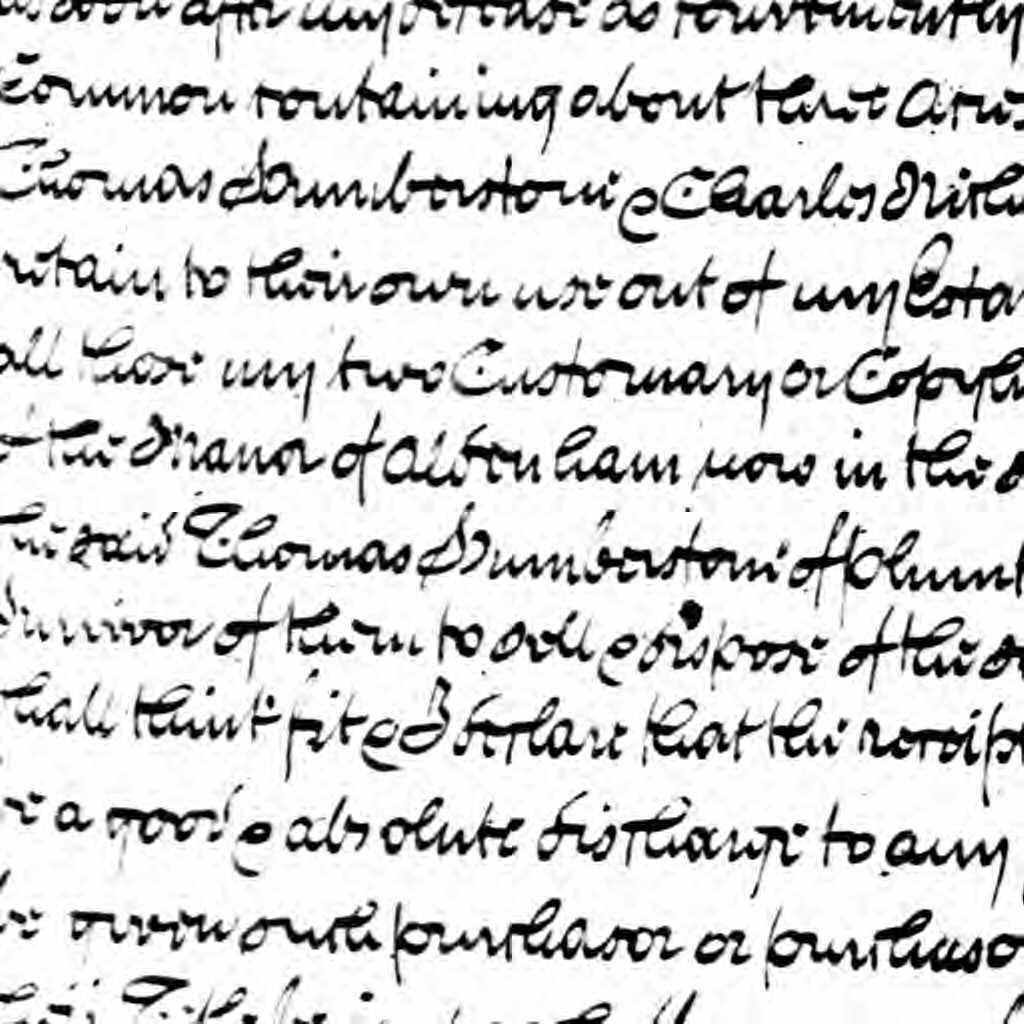 as soon after my decease as conveniently
Common containing about three Acres
Thomas Dumberstone & Charles
retain to their own use out of my Esta
all those my two Customary or Copyh
the Manor of Aldenham now in the
the said Thomas Dumberstone of
Survivor of them to sell & dispose of the
shall think fit & I declare that the receipt
be a good & absolute discharge to any
be given such purchasor or purchaso